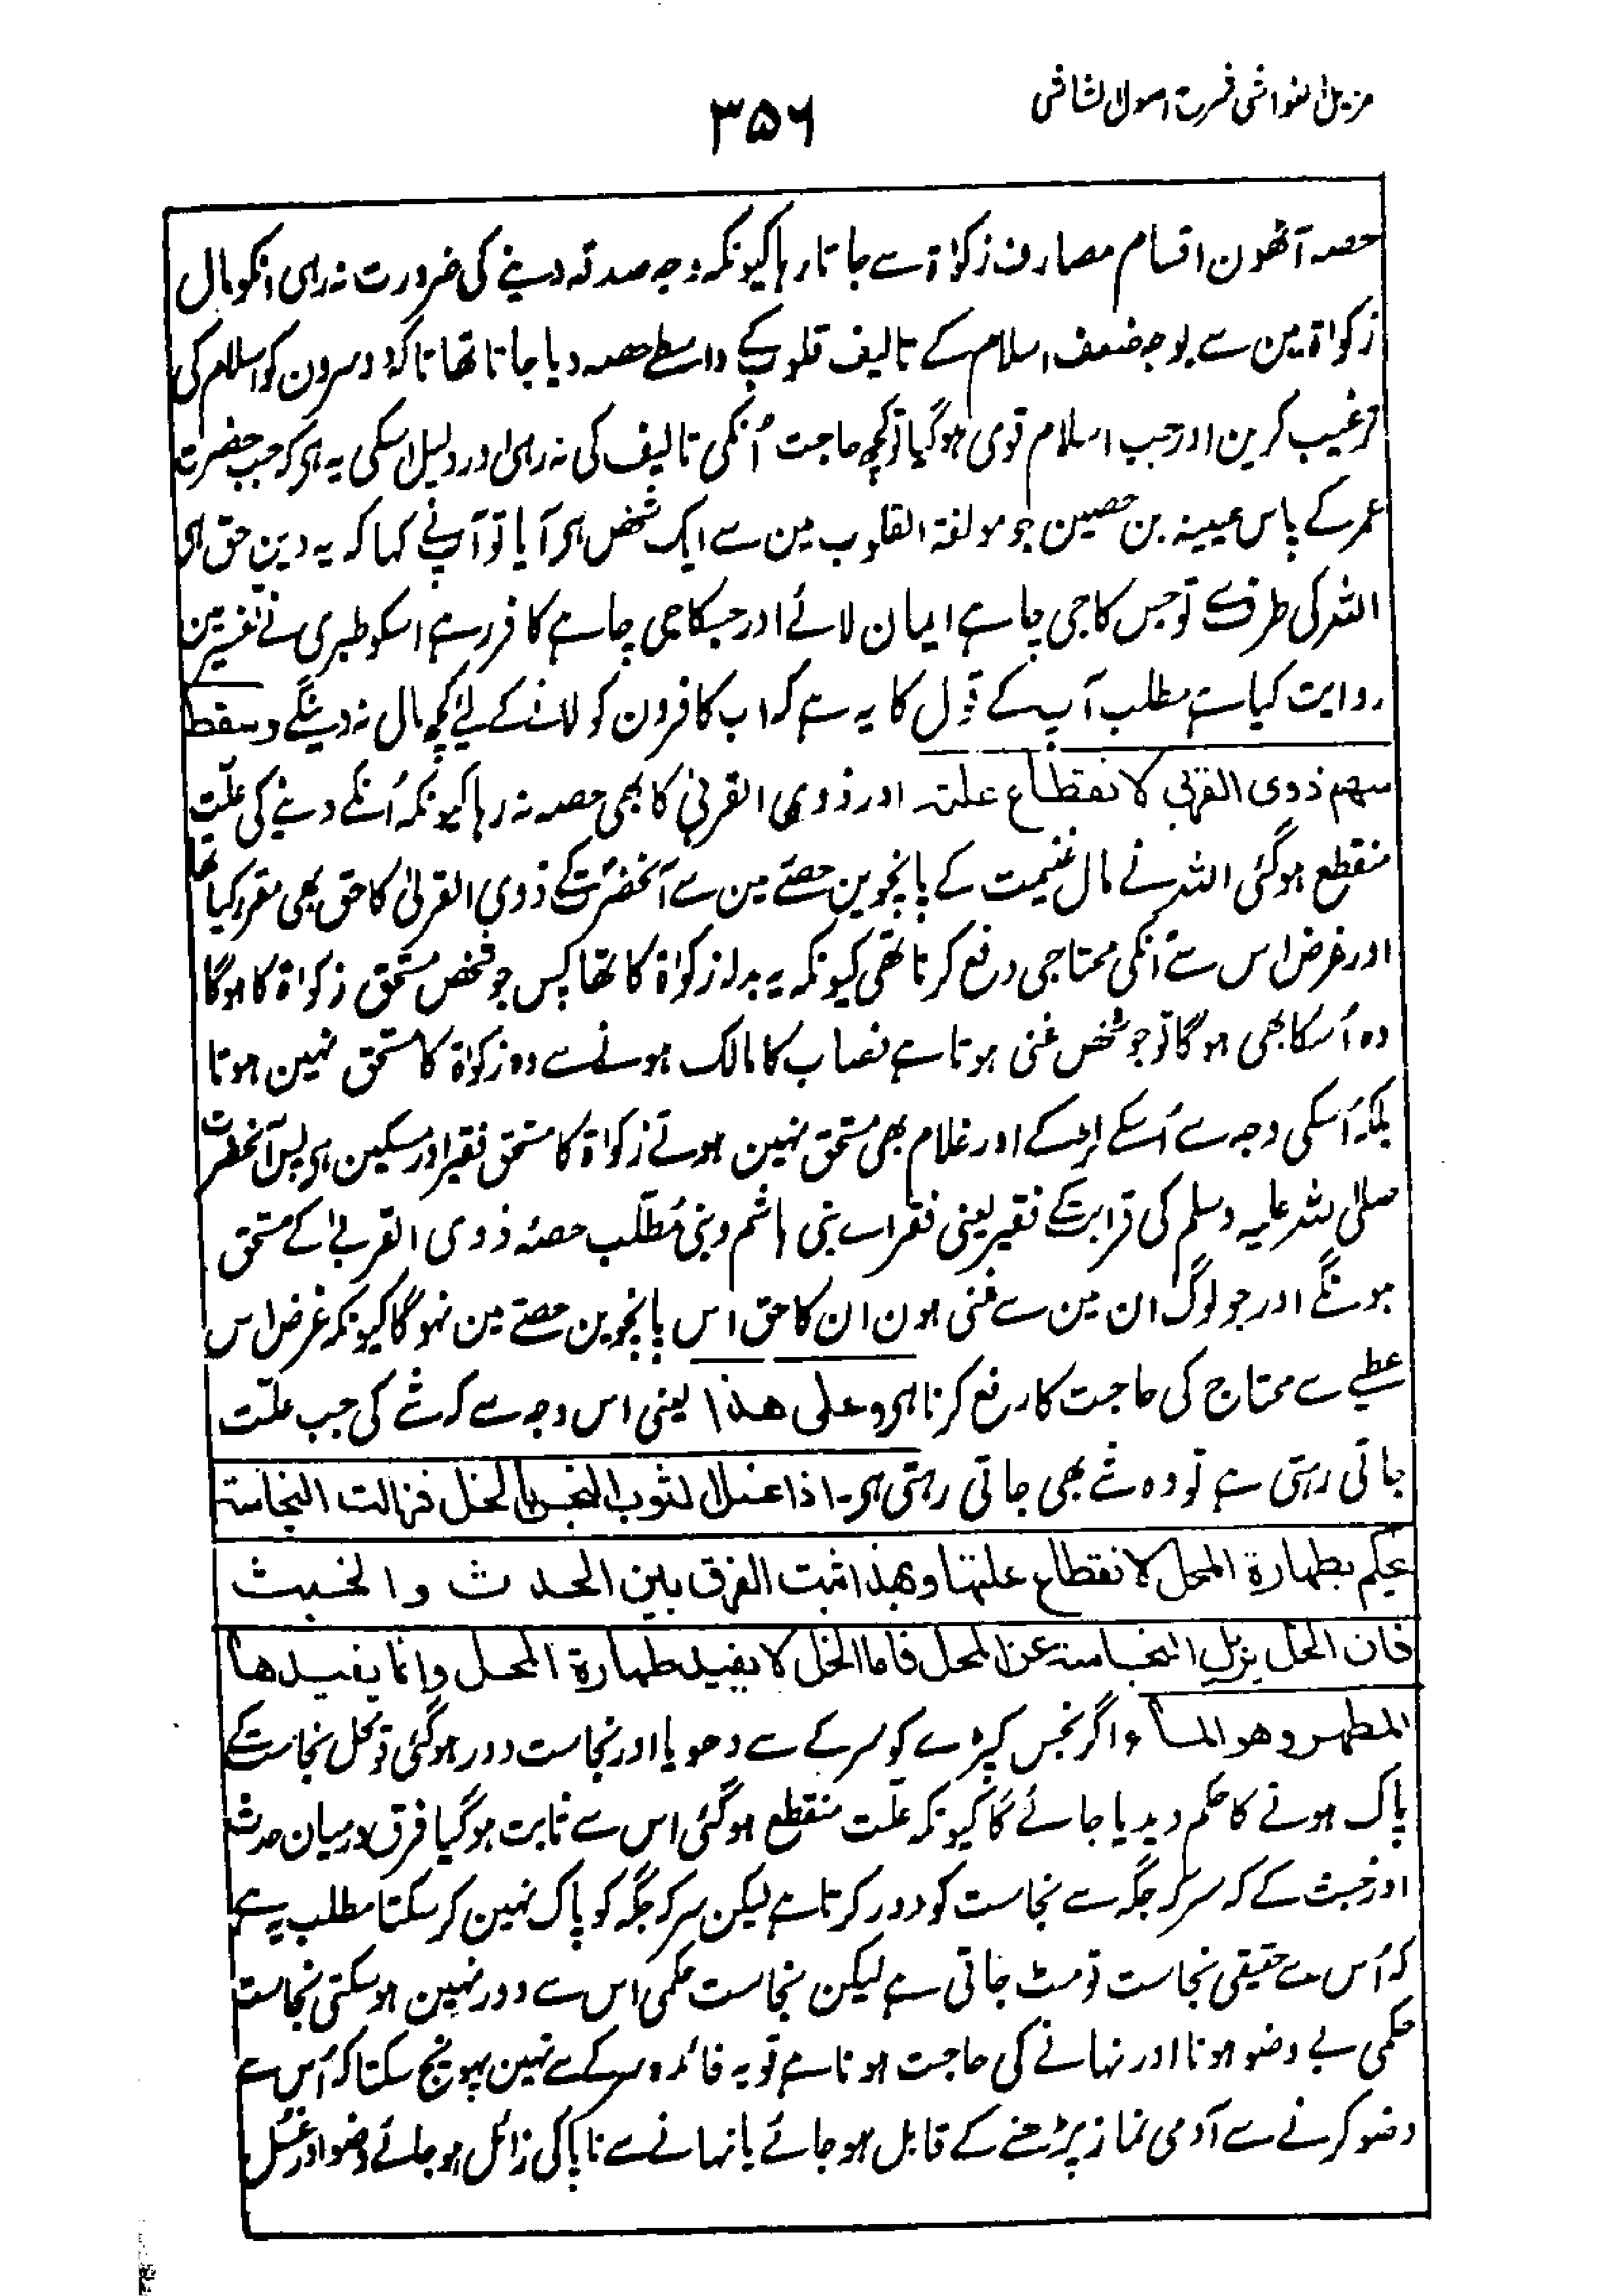 مزیل الغواشی شرح اصول الشاشی
۳۵۶
حصہ آٹھون اقسام مصارف زکواۃ سے جاتا رہا کیونکہ وجہ صدقہ دینے کی ضرورت نہ رہی انکو مال
زکواۃ مین سے بوجہ ضعف اسلام کے تالیف قلوب کے واسطے حصہ دیا جاتا تھا تاکہ دوسرون کو اسلام کی
ترغیب کرین اور جب اسلام قوی ہوگیا تو کچھ حاجت اُنکی تالیف کی نہ رہی اور دلیل اسکی یہ ہی کہ جب حضرت
عمر کے پاس عیینہ بن حصین جو مولفۃ القلوب مین سے ایک شخص ہی آیا تو آپنے کہا کہ یہ دین حق ہی
اللہ کی طرف سے تو جس کا جی چاہے ایمان لائے اور جسکا جی چاہے کافر رہے اسکو طبری نے تفسیر مین
روایت کیا ہے مطلب آپ کے قول کا یہ ہے کہ اب کافرون کو لانے کے لیئے کچھ مال نہ دینگے وسقط
سھم ذوی القربی لانقطاع علتہ اور ذوی القربیٰ کا بھی حصہ نہ رہا کیونکہ اُنکے دینے کی علّت
منقطع ہوگئی اللہ نے مال غنیمت کے پانچوین حصّے مین سے آنحضرت کے ذوی القربیٰ کا حق بھی مقرر کیا تھا
اور غرض اس سے اُنکی محتاجی دفع کرنا تھی کیونکہ یہ بدلہ زکواۃ کا تھا پس جو شخص مستحق زکواۃ کا ہوگا
وہ اُسکا بھی ہوگا تو جو شخص غنی ہوتا ہے نصاب کا مالک ہونے سے وہ زکواۃ کا مستحق نہین ہوتا
بلکہ اُسکی وجہ سے اُسکے لڑکے اور غلام بھی مستحق نہین ہوتے زکواۃ کا مستحق فقیر اور مسکین ہی پس آنحضرت
صلی اللہ علیہ وسلم کی قرابت کے فقیر یعنی فقراے بنی ہاشم و بنی مُطّلب حصۂ ذوی القربےٰ کے مستحق
ہونگے اور جو لوگ ان مین سے غنی ہون ان کا حق اس پانچوین حصّے مین نہوگا کیونکہ غرض اس
عطیے سے محتاج کی حاجت کا رفع کرنا ہی وعلی ھذا یعنی اس وجہ سے کہ شے کی جب علّت
جاتی رہتی ہے تو وہ شے بھی جاتی رہتی ہی۔ اذا غسل الثوب النجس بالخل فزالت النجاستہ
یحکم بطھارۃ المحل لانقطاع علتھا وبھذا ثبت الفرق بین الحدث والخبث
فان الخل یزیل النجاستہ عن المحل فاما الخل لا یفید طھارۃ المحل وانما یفیدھا
المطھر وھو الماء اگر نجس کپڑے کو سرکے سے دھویا اور نجاست دور ہوگئی تو محل نجاست کے
پاک ہونے کا حکم دیدیا جائے گا کیونکہ علّت منقطع ہوگئی اس سے ثابت ہوگیا فرق درمیان حدث
اور خبث کے کہ سرکہ جگہ سے نجاست کو دور کرتا ہے لیکن سرکہ جگہ کو پاک نہین کرسکتا مطلب یہ ہے
کہ اُس سے حقیقی نجاست تو مٹ جاتی ہے لیکن نجاست حکمی اس سے دور نہین ہوسکتی نجاست
حکمی بے وضو ہونا اور نہانے کی حاجت ہونا ہے تو یہ فائدہ سرکے سے نہین پہونچ سکتا کہ اُس سے
وضو کرنے سے آدمی نماز پڑھنے کے قابل ہوجائے یا نہانے سے ناپاکی زائل ہوجائے وضو اور غسل